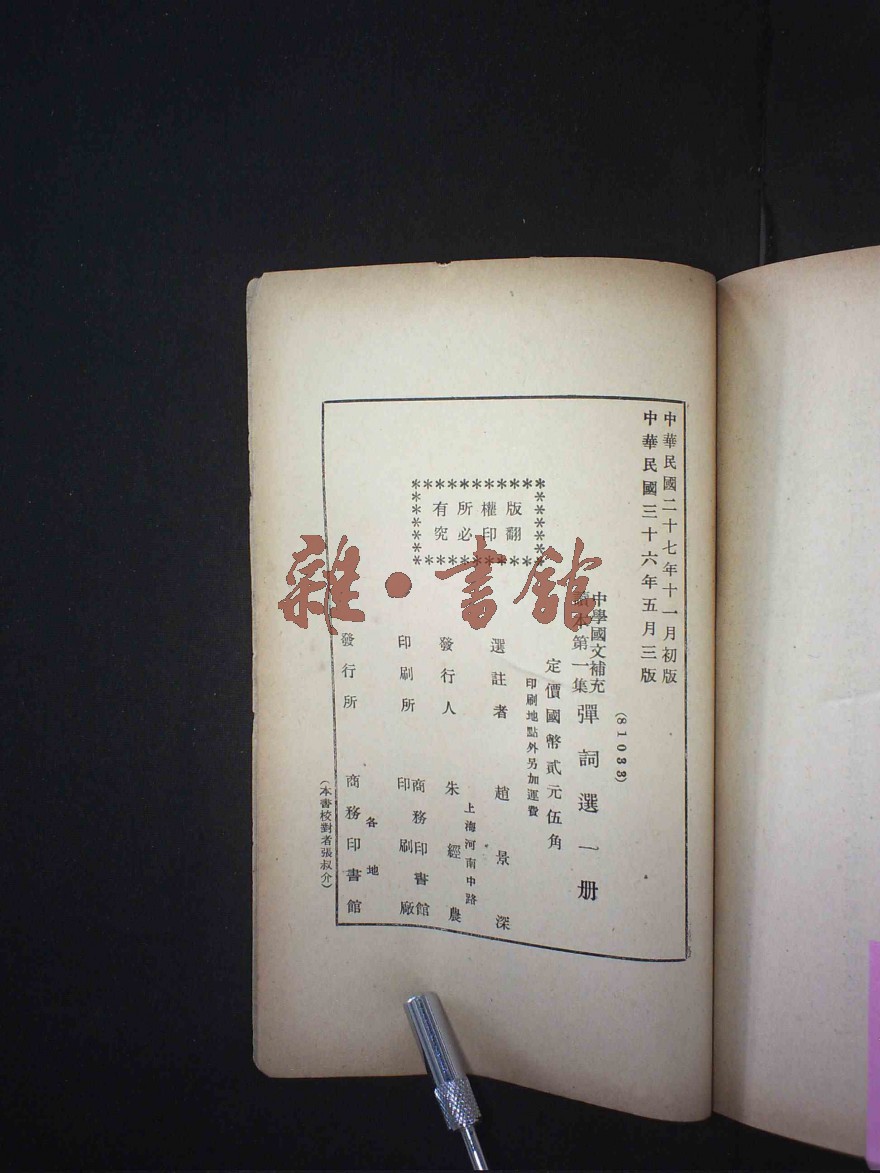 中華民國二十七年十一月初版
中華民國三十六年五月三版
(81033)
中學國文補充
讀本第一集
彈詞選一册
定價國幣貳元伍角
印刷地點外另加運費
選註者 趙景深
上海河南中路
發行人 朱經農
印刷所 商務印書館
印刷廠
各地
發行所 商務印書館
(本書校對者張叔介)
版權所有
翻印必究
雜·書館